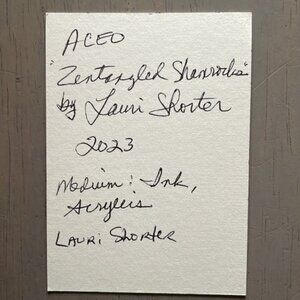 ACEO
"Zentangled Shamrocks"
by Lauri Shorter
2023
Medium: Ink,
Acrylics
LAURI SHORTER